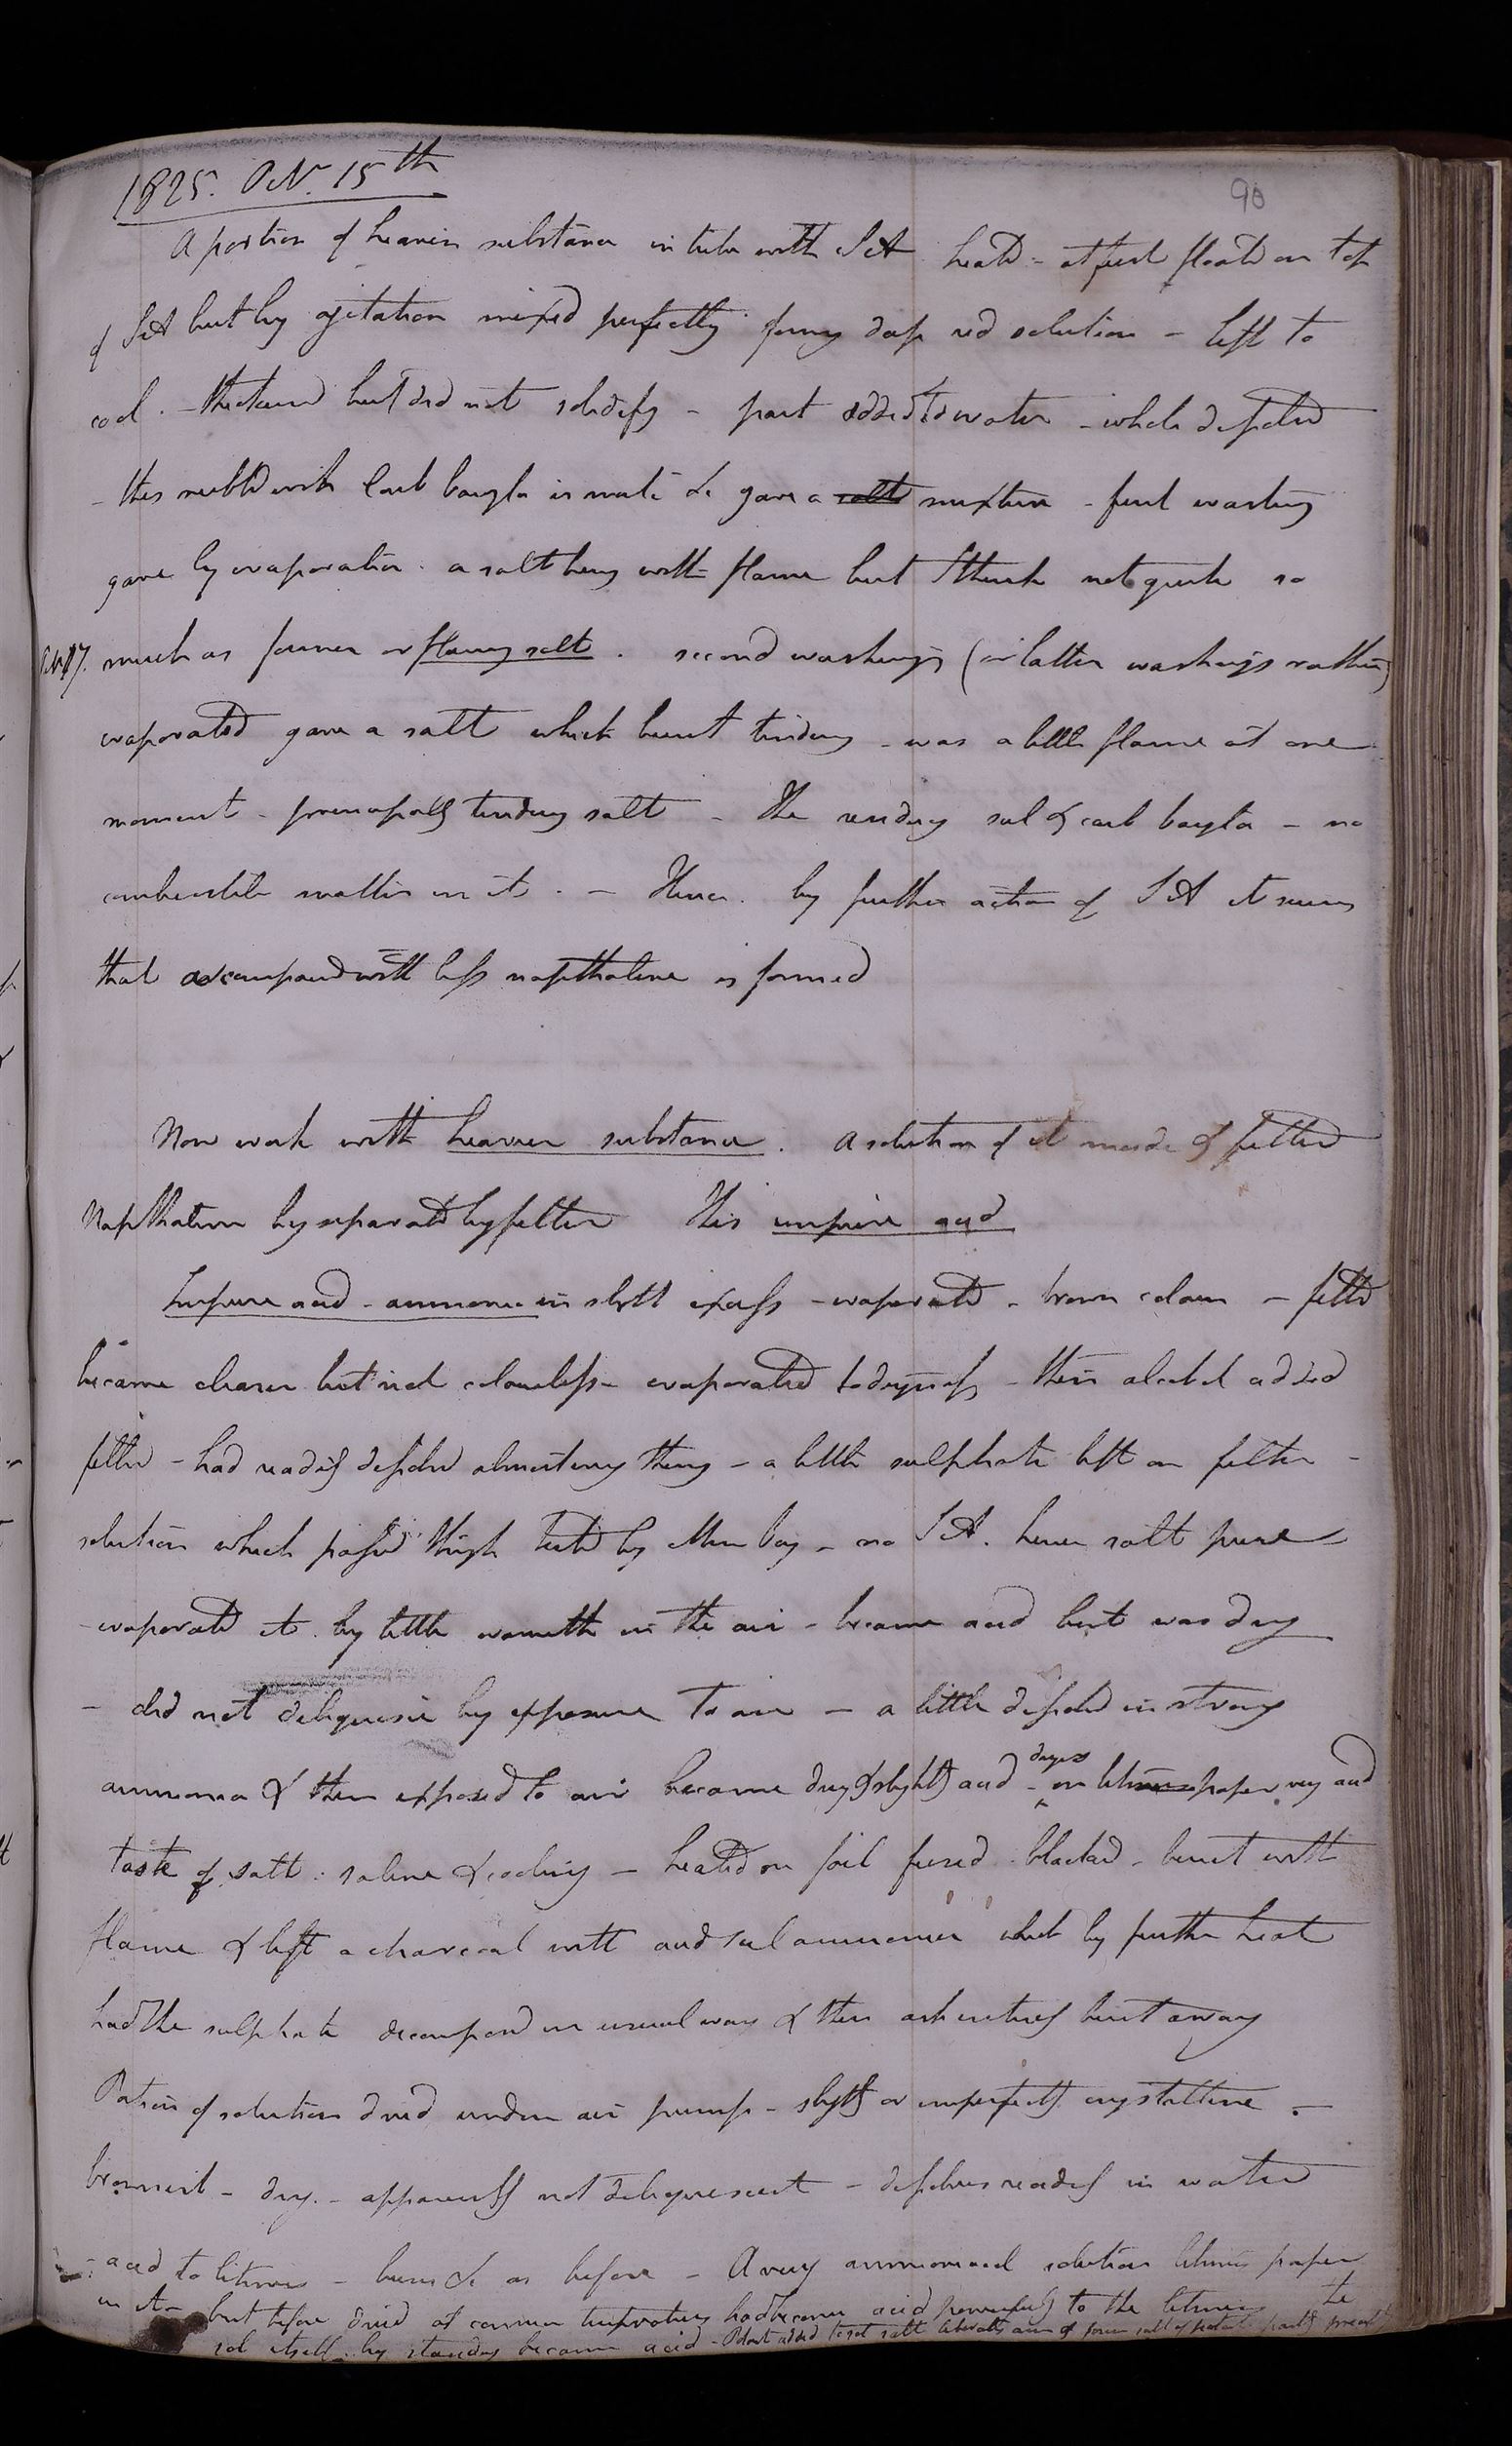 1825. Octr. 15th
90
A portion of heavier substance in tube with SA heated - at first floated on top
of SA but by agitation mixed perfectly forming deep red solution - left to
cool. - thickened but did not solidify - part added to water - whole dissolved
- this rubbed with Carb baryta in water &c gave a salt mixture - first washing
gave by evaporation. a salt burng with flame but I think not quite so
much as former or flamy salt. second washings (or latter washings rather)
evaporated gave a salt which burnt tindery - was a little flame at one
moment - principally tindery salt - The residuy sul & carb baryta - no
combustible matter in it. - Hence. by further action of SA it seems
that a compound with less napthaline is formed
Now work with heavier substance. A solution of it made & filtered
Napthaline by separated by filter This impure acid
Impure acid - ammonia in slight excess - evaporated - brown colour - filtd
became clearer but not colourless - evaporated to dryness - then alcohol added
filtd - had readily dissolved almost every thing - a little sulphate left on filter -
solution which passed through tested by Mur bary - no SA. hence salt pure
- evaporated it by little warmth in the air - became acid but was dry
- did not deliquesce by exposure to air - a little dissolved in strong
ammonia & then exposed to air became dry & slightly acid - on litmus paper very acid
taste of salt: saline & cooling - heated on foil fused - blackend - burnt with
flame & left a charcoal with acid sul ammonia which by further heat
had the sulphate decomposed in usual way & then ash entirely burnt away
Portion of solution dried under air pump - slightly or imperfectly crystalline. -
brownish - dry. - apparently not deliquescent - dissolves readily in water
- acid to litmus - burns &c as before - A very ammoniacal solution litmus paper
in it - but before dried at common temperatures had become acid powerfully to the litmus The
sol itself by standing became acid - Potash added to sol salt liberates am & forms salt of potash partly